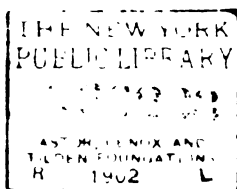 THE NEW YORK
PUBLIC LIBRARY
ASTOR, LENOX AND
TILDEN FOUNDATIONS
R 1902 L